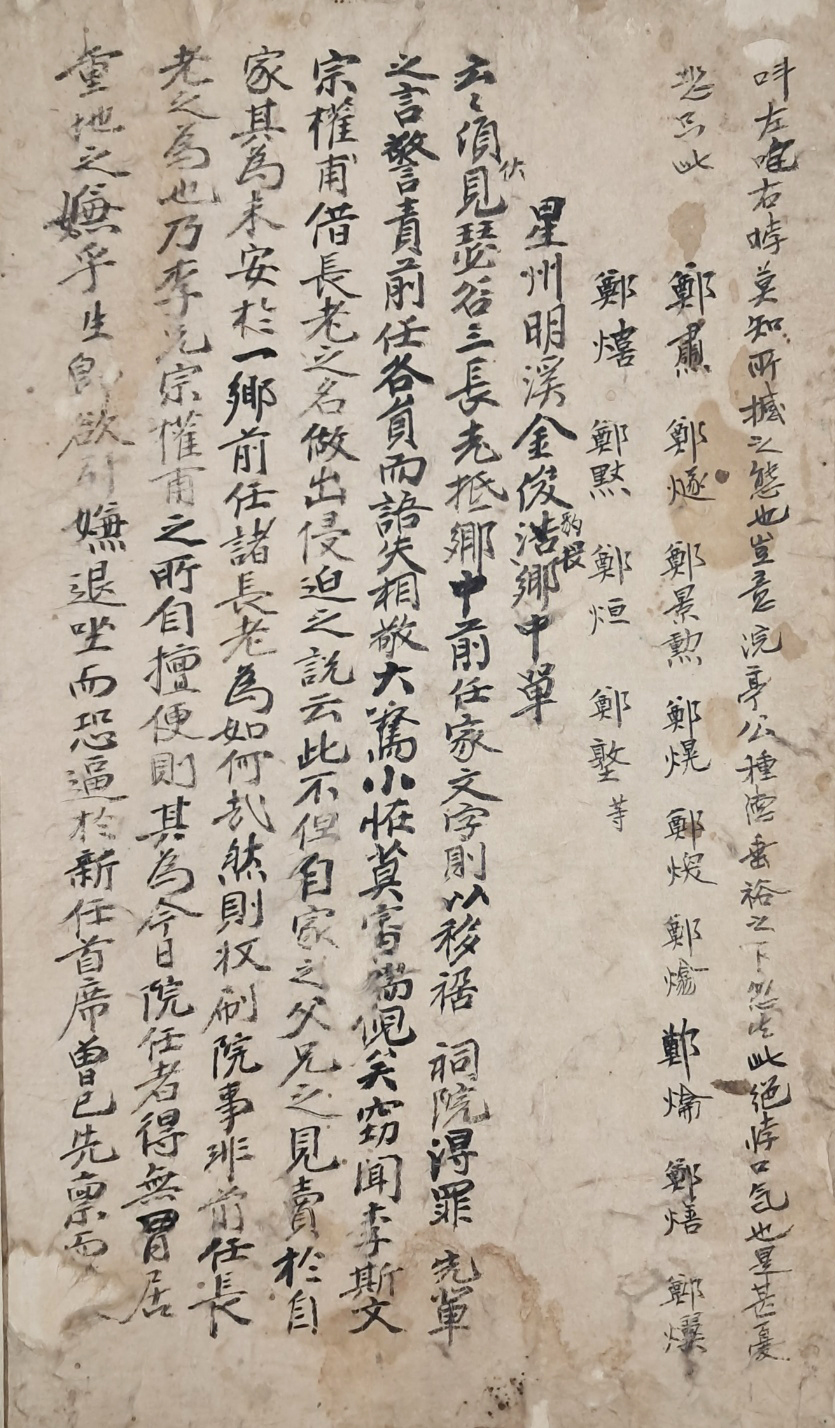 叫左咆右悖莫知所撼之態也豈意浣亭公種德垂裕之下忽生此絕悖口气也是甚憂
愁只此
鄭肅 鄭燧 鄭景勲 鄭熀 鄭煐 鄭爚 鄭爚 鄭熺 鄭爃
鄭熺 鄭黙 鄭烜 鄭墪 等
星州明溪金俊浩鄉中單
云〻湏見瑟谷三長老抵鄉中前任家文字則以移裾祠院淂罪先輩
伏
之言警責前任各員而語失相敬大驚小恠莫審端倪矣竊聞李斯文
宗權甫借長老之名做出侵迫之說云此不但自家之父兄之見賣於自
家其為未安於一鄉前任諸長老為如何㢤然則收刷院事非前任長
老之為也乃李兄宗權甫之所自擅便則其為今日院任者得無冒居
重地之嫌乎生即欲引嫌退坐而恐逼於新任首席曽已先禀而